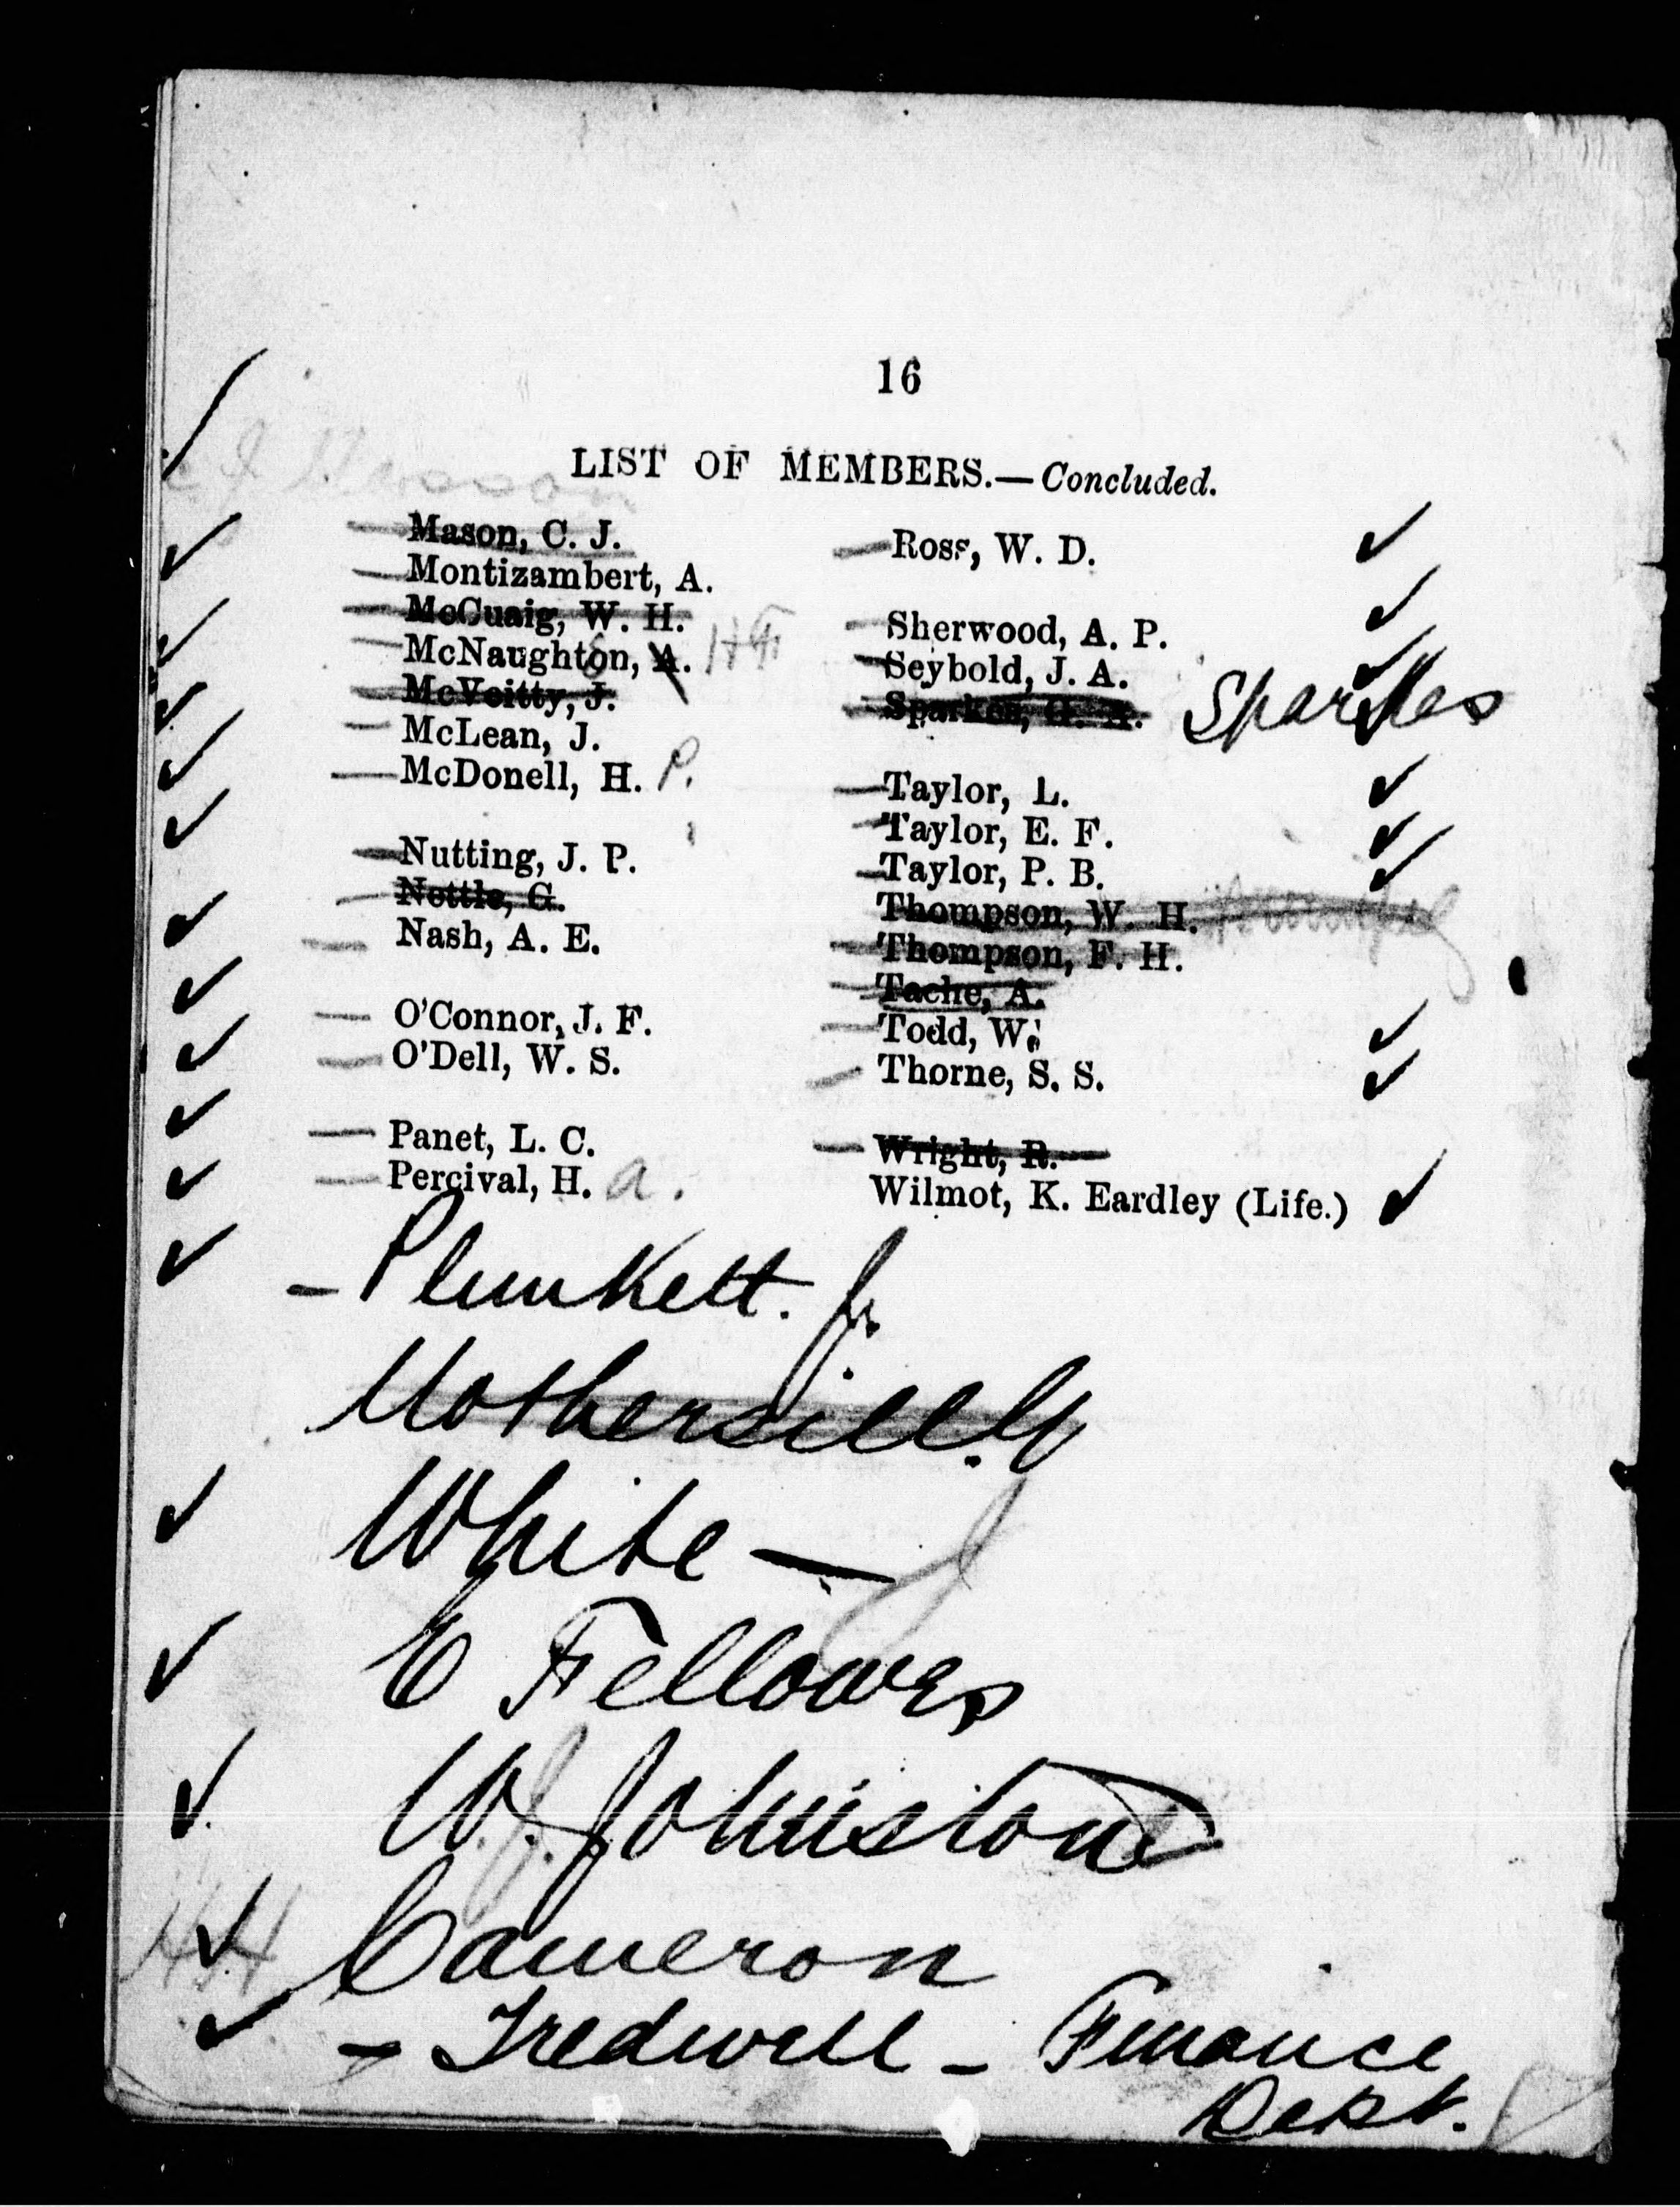 16
LIST OF MEMBERS.—Concluded.
Mason, C. J.
Montizambert, A.
McCuaig, W. H.
McNaughton, A.
McVeitty, J.
McLean, J.
McDonell, H. P.
Nutting, J. P.
Nettle, G.
Nash, A. E.
O'Connor, J. F.
O'Dell, W. S.
Panet, L. C.
Percival, H. a.
Ross, W. D.
Sherwood, A. P.
Seybold, J. A.
Sparkes, G. A. Sparkes
Taylor, L.
Taylor, E. F.
Taylor, P. B.
Thompson, W. H.
Thompson, F. H.
Tache, A.
Todd, W.
Thorne, S. S.
Wright, R.
Wilmot, K. Eardley (Life.)
- Plunkett. Jr.
Mothersill
White —
C Fellowes
W. J. Johnstone
Cameron
- Tredwell - Finance
Dept.